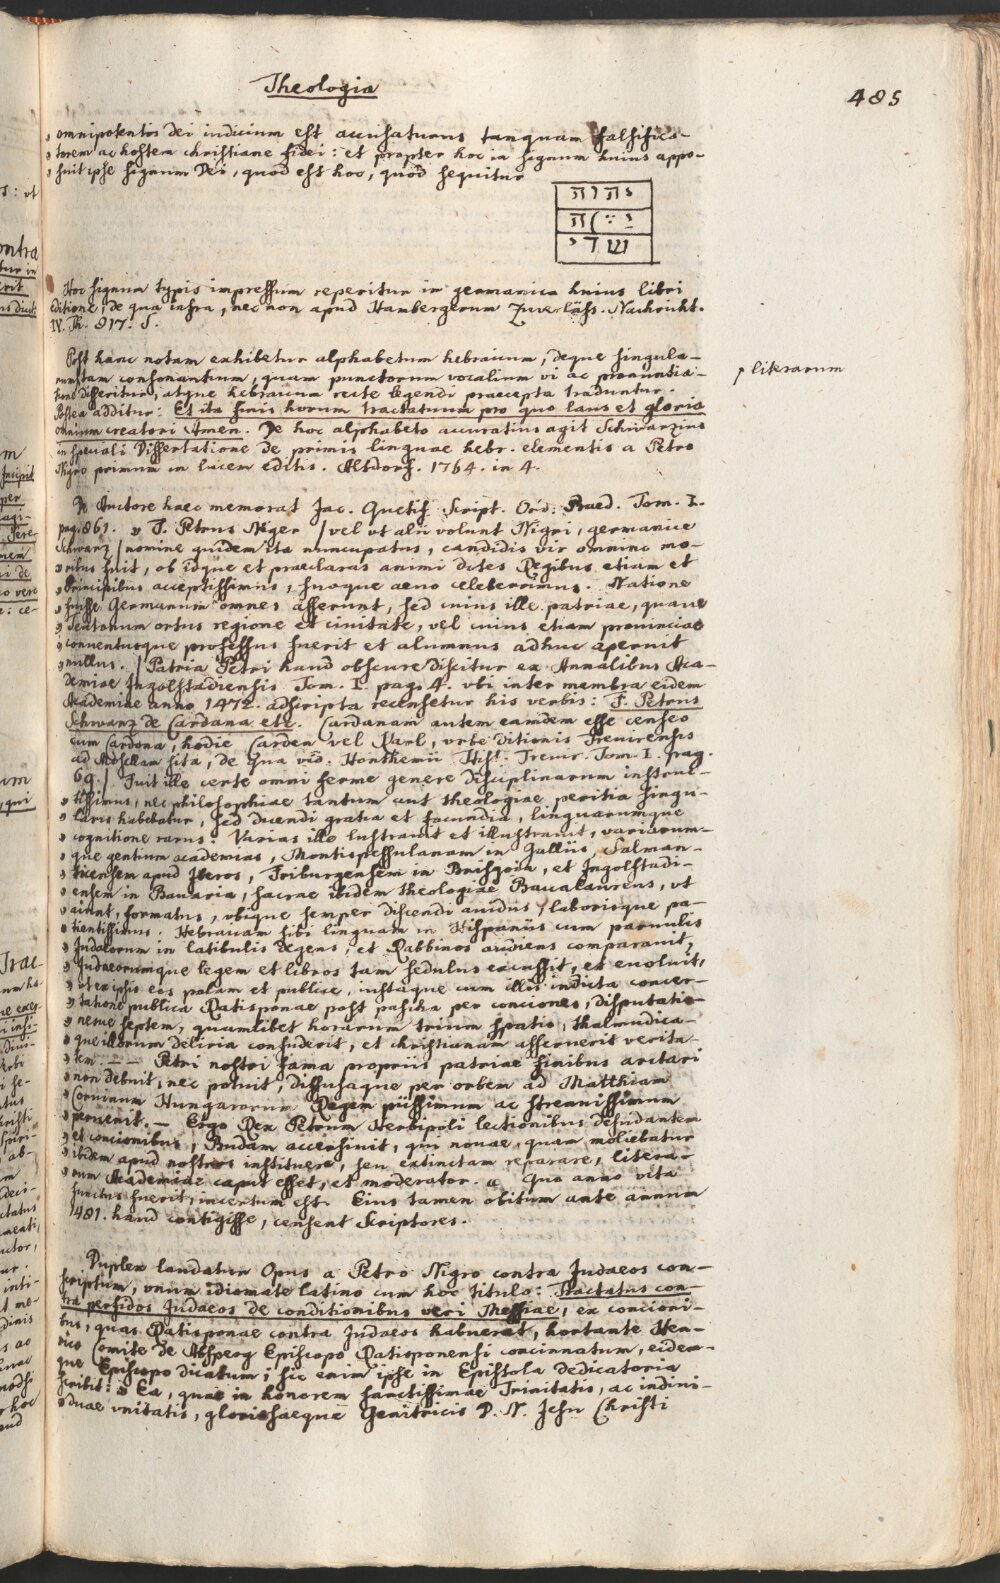 Theologia
485
" omnipotentis dei iudicium est accusaturus tanquam falsifica-
" torem ac hostem christiane fidei: et propter hoc in signum huius appo-
" suit ipse signum Dei, quod est hoc, quod sequitur
יהוה
שדי
Hoc signum typis impressum reperitur in germanica huius libri
editione, de qua infra, nec non apud Hambergerum Zuverläss. Nachricht.
IV. Th. 817. S.
Post hanc notam exhibetur alphabetum hebraicum, deque singula-
rum tam consonantium, quam punctorum vocalium vi ac pronuntia-
literarum
tione disseritur, atque hebraicum recte legendi praecepta traduntur.
Postea additur: Et ita finis horum tractatuum pro quo laus et gloria
omnium creatori Amen. De hoc alphabeto accuratius agit Schwarzius
in speciali Dissertatione de primis linguae hebr. elementis a Petro
Nigro primum in lucem editis. Altdorf. 1764. in 4.
De Auctore haec memorat Jac. Quetif Script. Ord. Praed. Tom. I.
pag. 861. " F. Petrus Niger / vel ut alii volunt Nigri, germanice
Schwarz / nomine quidem ita nuncupatus, candidis vir omnino mo-
" ribus fuit, ob idque et praeclaras animi dotes Regibus etiam et
" Principibus acceptissimus, suoque aevo celeberrimus. Natione
" fuisse Germanum omnes asserunt, sed cuius ille patriae, quave
" Teutonum ortus regione et civitate, vel cuius etiam provinciae
" conventusque professus fuerit et alumnus adhuc aperuit
" nullus. / Patria Petri haud obscure discitur ex Annalibus Aca-
demiae Ingolstadiensis Tom. I. pag. 4. vbi inter membra eidem
Academiae anno 1472. adscripta recensetur his verbis: F. Petrus
Schwarz de Cardana etc. Cardanam autem eamdem esse censeo
cum Cardona, hodie Carden vel Karl, vrbe ditionis Trevirensis
ad Mosellam sita, de qua vid. Honthemii Hist. Trevir. Tom. I. pag.
69. / Fuit ille certe omni ferme genere disciplinarum instruc-
" tissimus, nec philosophiae tantum aut theologiae peritia singu-
" laris habebatur, sed dicendi gratia et facundia, linguarumque
" cognitione rarus. Varias ille lustravit et illustravit, variarum-
" que gentium academias, Montispessulanam in Galliis, Salman-
" ticensem apud Iberos, Friburgensem in Brisgoia, et Ingolstadi-
" ensem in Bavaria, sacrae ibidem theologiae Baccalaureus, vt
" aiunt, formatus, vbique semper discendi avidus, laborisque pa-
" tientissimus. Hebraicam sibi linguam in Hispaniis cum parvulis
" Judaeorum in latibulis degens, et Rabbinos audiens comparavit,
" Judaeorumque legem et libros tam sedulus excussit, et evoluit,
" vt ex ipsis eos palam et publice, instaque cum illis indicta concer-
" tatione publica Ratisponae post pascha per conciones, disputatio-
" nesve septem, quamlibet horarum trium spatio, thalmudica-
" que illorum deliria confuderit, et christianam asseruerit verita-
" tem. — — Petri nostri fama propriis patriae finibus arctari
" non debuit, nec potuit, diffusaque per orbem ad Matthiam
" Corvinum Hungarorum Regem piissimum ac strenuissimum
" pervenit. — Ergo Rex Petrum Herbipoli lectionibus desudantem
" et concionibus, Budam accersivit, qui novae, quam moliebatur
" ibidem apud nostros instituere, seu extinctam reparare, literar
" rum Academiae caput esset, et moderator. " Quo anno vita
functus fuerit, incertum est. Eius tamen obitum ante annum
1481. haud contigisse, censent Scriptores.
Duplex laudatur Opus a Petro Nigro contra Judaeos con-
scriptum, vnum idiomate latino cum hoc titulo: Tractatus con-
tra perfidos Judaeos de conditionibus veri Messiae, ex concioni-
bus, quas Ratisponae contra Judaeos habuerat, hortante Hen-
rico Comite de Absperg Episcopo Ratisponensi concinnatum, eidem-
que Episcopo dicatum; sic enim ipse in Epistola dedicatoria
scribit: " Ea, quae in honorem sanctissimae Trinitatis, ac indivi-
" duae vnitatis, gloriosaeque Genitricis D. N. Jesu Christi